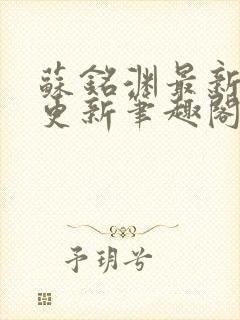 蘇銘淵最新
更新筆趣閣
予玥兮